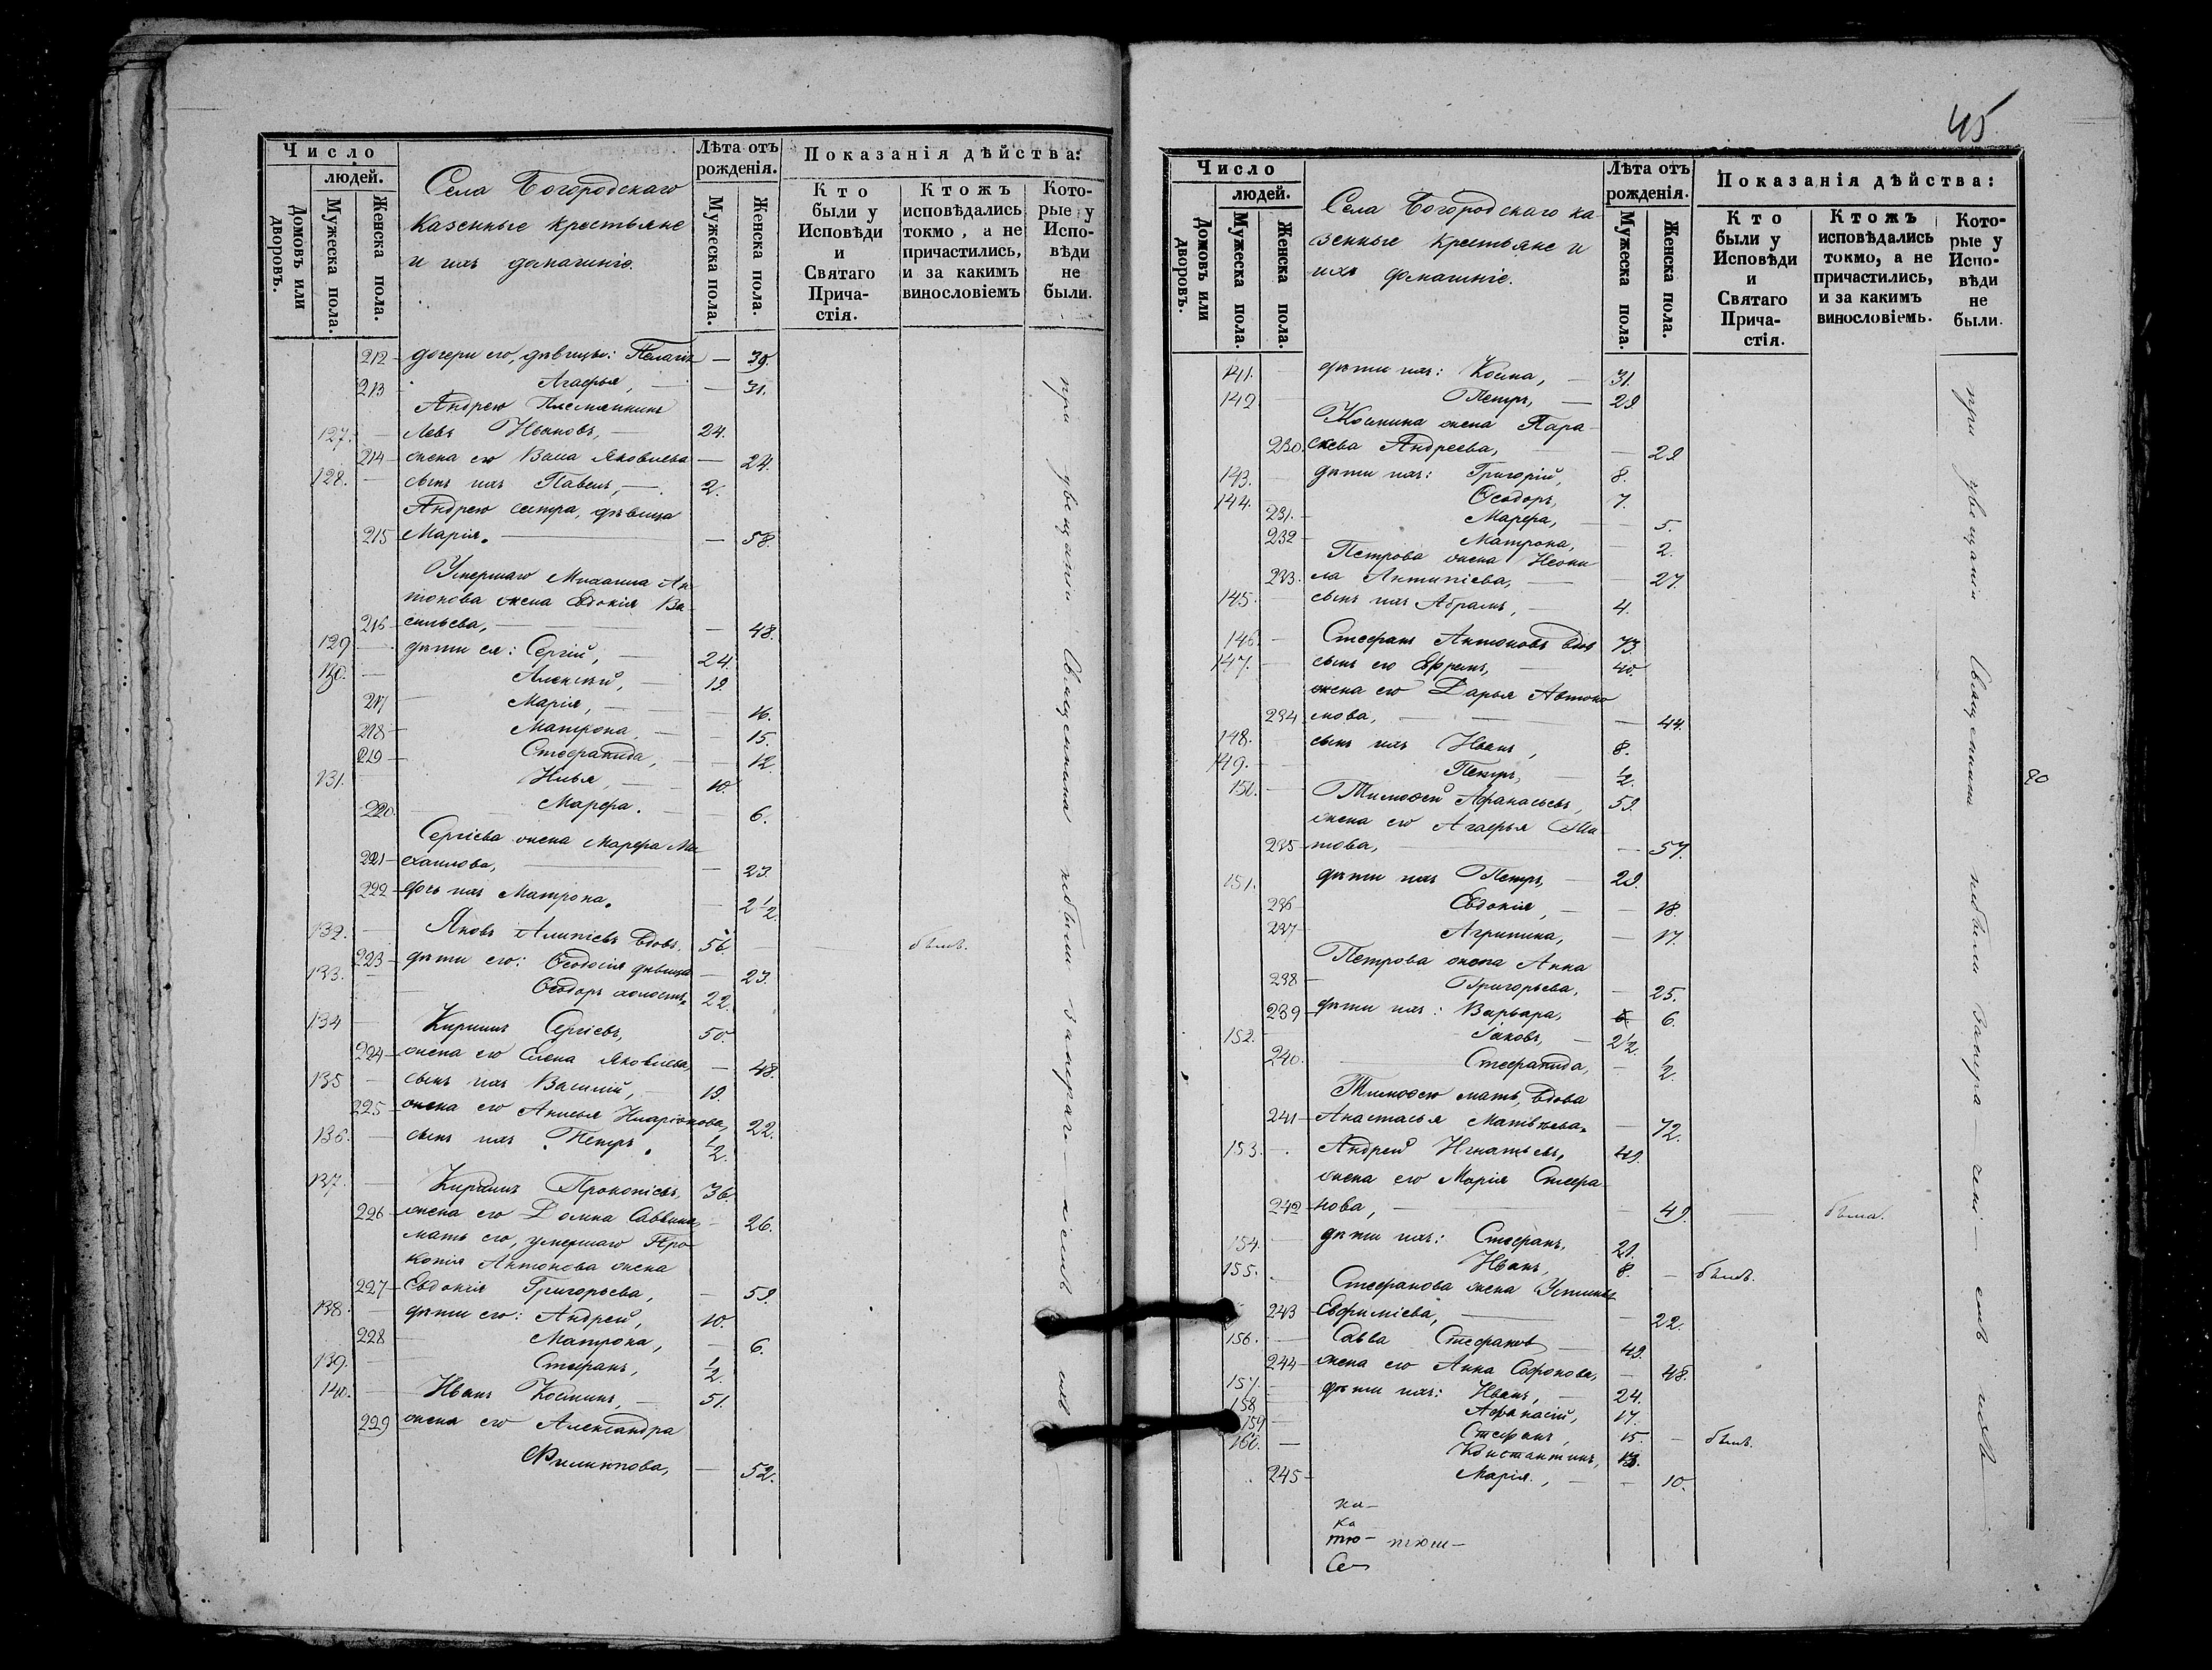 Число
людей.
Домовъ или дворовъ.
Мужеска пола.
Женска пола.
Села Богородскаго
казенные крестьяне
и ихъ домашніе.
Лѣта отъ рожденія.
Мужеска пола.
Женска пола.
Показанія дѣйства:
Кто были у Исповѣди и Святаго Причастія.
Ктожъ исповѣдались токмо, а не причастились, и за какимъ винословіемъ
Которые у Исповѣди не были.
212 дочери его, дѣвицы: Пелагія — 39.
213 Агафья, — 31.
Андрею племянникъ
127. Левъ Ивановъ, — 24.
214 жена его Васа Яковлева — 24.
128. сынъ ихъ Павелъ, — 2.
Андрею сестра, дѣвица
215 Марія. — 58.
Умершаго Михаила Ан-
тонова жена Евдокія Ва-
216 сильева, — 48.
129 дѣти ея: Сергій, — 24.
130. Алексѣй, — 19.
217 Марія, — 16.
218 Матрона, — 15.
219 Стефанида, — 12.
131. Илья, — 10.
220. Марфа. — 6.
Сергіева жена Марфа Ми-
221 хаилова, — 23.
222 дочь ихъ Матрона. — 2 1/2
132. Яковъ Алипіевъ вдовъ. 56. — былъ.
223 дѣти его: Ѳеодосія дѣвица — 23.
133. Ѳеодоръ холостъ, 22.
134 Кирилъ Сергіевъ, 50.
224 жена его Елена Яковлева, — 48.
135 сынъ ихъ Василій, — 19.
225 жена его Анисья Иларіонова, 22.
136. сынъ ихъ Петръ. 1/2.
137. Кирилъ Прокопіевъ, 36.
226 жена его Домна Саввина, — 26.
мать его, умершаго Про-
копія Антонова жена
227 Евдокія Григорьева, — 59.
138. дѣти его: Андрей, 10.
228 Матрона, — 6.
139. Стефанъ, 1/2.
140. Иванъ Косминъ, — 51.
229 жена его Александра
Филиппова, — 52.
при увещаніи Священника небыли
45
Число
людей.
Домовъ или дворовъ.
Мужеска пола.
Женска пола.
Села Богородскаго ка-
зенные крестьяне и
ихъ домашніе.
Лѣта отъ рожденія.
Мужеска пола.
Женска пола.
Показанія дѣйства:
Кто были у Исповѣди и Святаго Причастія.
Ктожъ исповѣдались токмо, а не причастились, и за какимъ винословіемъ.
Которые у Исповѣди не были.
141. дѣти ихъ: Косма, — 31.
142 Петръ, — 29.
Космина жена Пара-
230. скева Андреева, — 29
143. дѣти ихъ: Григорій, 8.
144. Ѳеодоръ, 7.
231. Марфа, — 5.
232 Матрона, — 2.
Петрова жена Неони-
233. ла Антипіева, — 27.
145. сынъ ихъ Абрамъ, — 4.
146. Стефанъ Антоновъ вдов 73.
147. сынъ его Ефремъ, — 40.
жена его Дарья Автоно-
234 мова, — 44.
148. сынъ ихъ Иванъ, 8.
149. Петръ, 1/2.
150. Тимоѳей Афанасьевъ, 59.
жена его Агафья
235 това, — 57.
151. дѣти ихъ Петръ, — 29.
236 Евдокія, — 18.
237 Агрипина, — 17.
Петрова жена Анна
238 Григорьева, — 25.
239 дѣти ихъ: Варвара, 6.
152. Іаковъ, — 2 1/2.
240. Стефанида, — 1/2.
Тимоѳею мать, вдова
241 Анастасья Матвѣева. — 72.
153. Андрей Игнатьевъ, 49.
жена его Марія Стефа-
242 нова, — 49. — была.
154. дѣти ихъ: Стефанъ, 21.
155. Иванъ, 8. — былъ.
Стефанова жена Устинья
243 Евфиміева, — 22.
156. Савва Стефановъ — 49.
244 жена его Анна Софонова, — 48.
157. дѣти ихъ: Иванъ, — 24.
158 Афанасій, 17.
159 Стефанъ, 15. — былъ.
160. Константинъ, 13.
245 Марія, — 10.
на-
ка
тю- тюш-
Се
при увещаніи Священника небыли
80